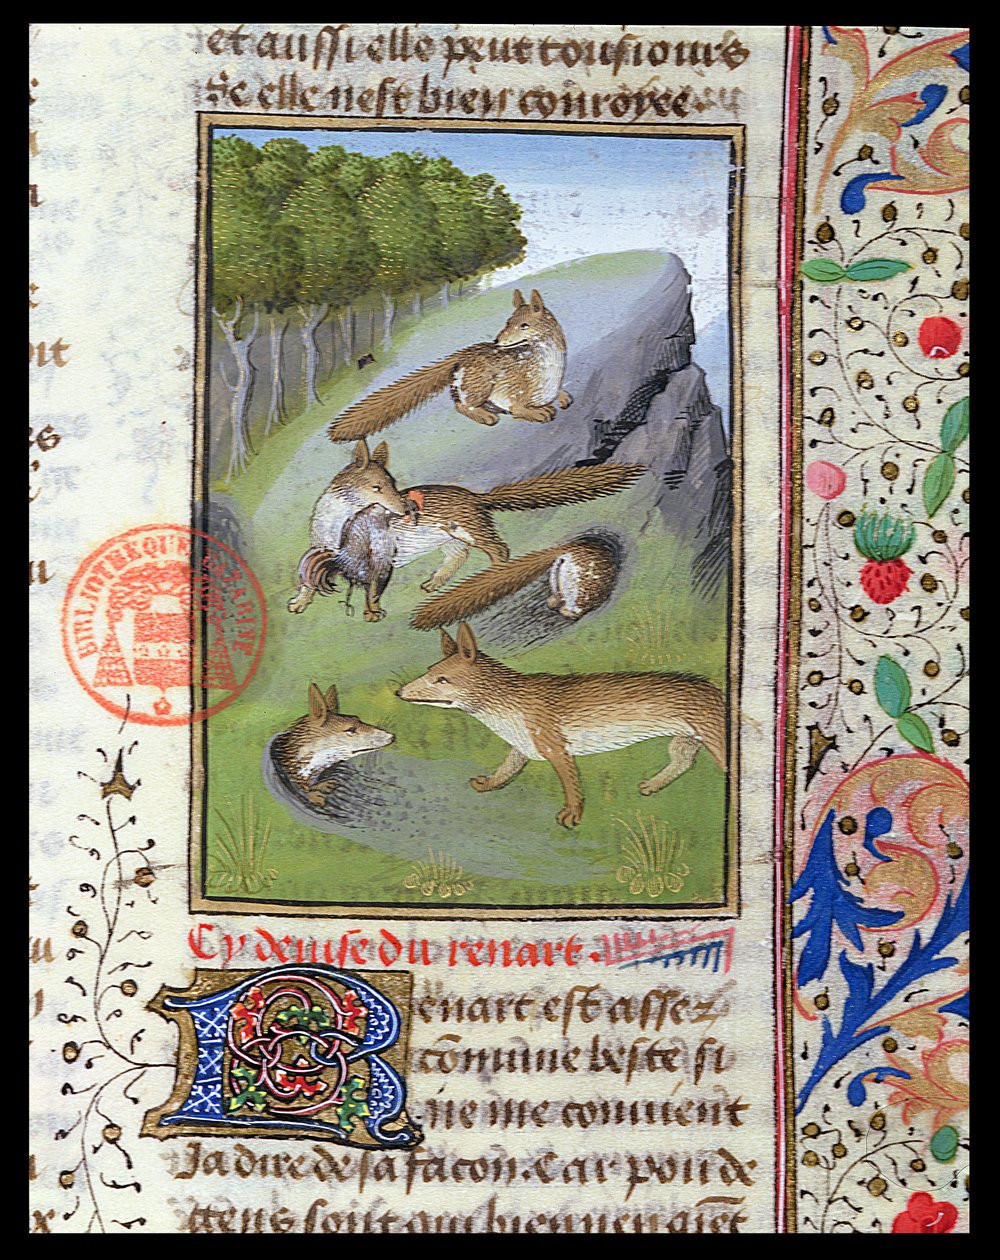 et aussi elle peut tousiours
Se elle nest bien couroyee
BIBLIOTHEQUE MAZARINE
Cy deuise du renart.
Renart est assez
cōmune beste si
ne me conuient
Ja dire de sa facon. Car pou de
gens sont qui bien nen aiēt